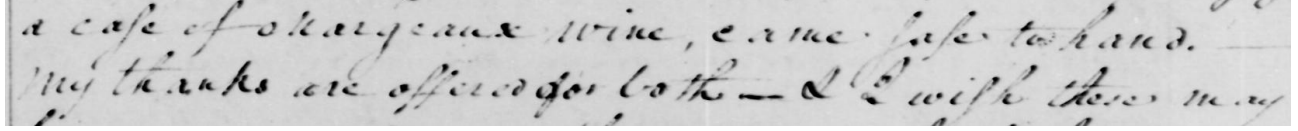 a case of Margeaux wine, came safe to hand.
My thanks are offered for both — & I wish these may